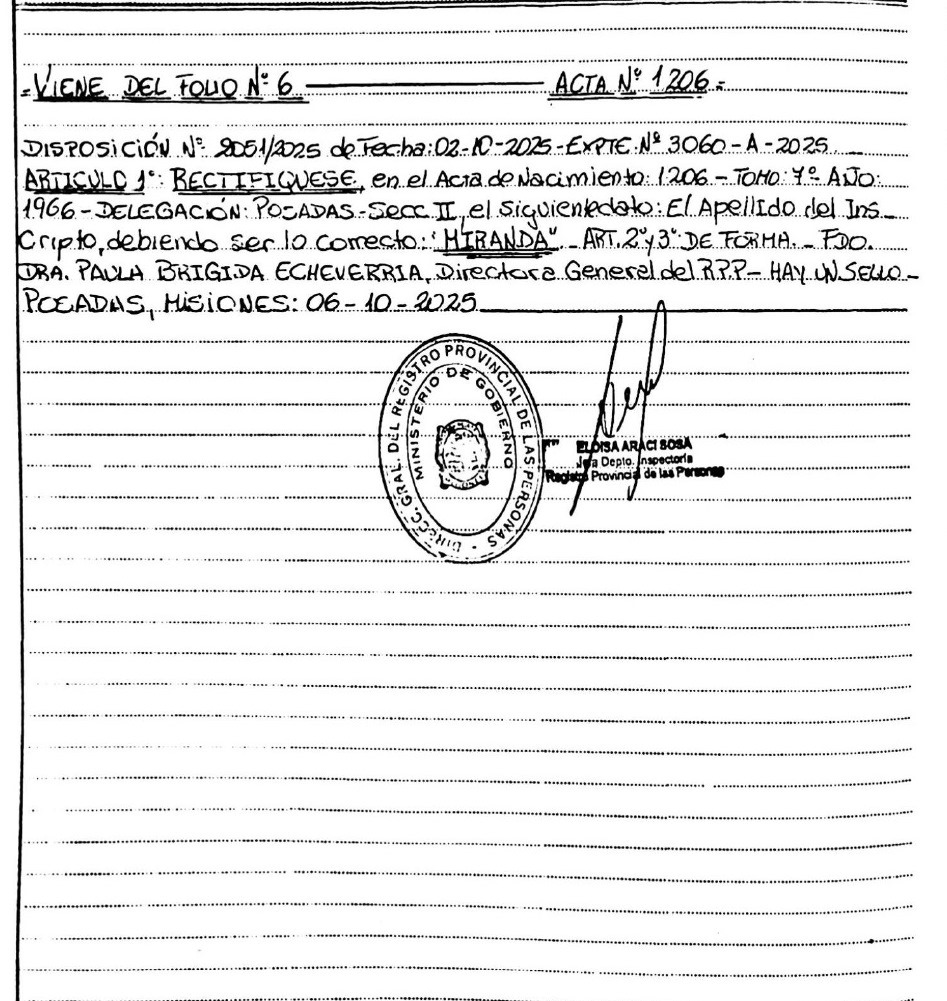 - VIENE DEL FOLIO Nº 6 ACTA Nº 1206 -
DISPOSICIÓN Nº 2051/2025 de Fecha: 02-10-2025 - EXPTE Nº 3060 - A - 2025
ARTICULO 1º: RECTIFIQUESE, en el Acta de Nacimiento: 1206 - TOMO: 7º AÑO:
1966 - DELEGACIÓN: POSADAS - Secc II, el siguiente dato: El Apellido del Ins
cripto, debiendo ser lo correcto: "MIRANDA" - ART. 2º y 3º DE FORMA. - FDO.
DRA. PAULA BRIGIDA ECHEVERRIA, Directora General del R.P.P - HAY UN SELLO -
POSADAS, MISIONES: 06 - 10 - 2025
DIRECC. GRAL. DEL REGISTRO PROVINCIAL DE LAS PERSONAS -
MINISTERIO DE GOBIERNO
ELOISA ARACI SOSA
Jefa Depto. Inspectoria
Registro Provincial de las Personas